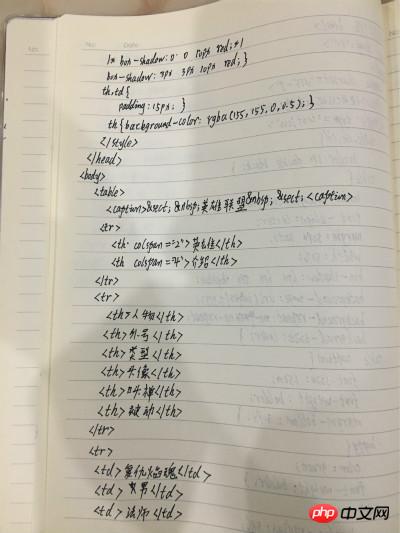 No.
Date
/* box-shadow: 0 0 10px red; */
box-shadow: 3px 3px 10px red; }
th,td{
padding: 15px; }
th{background-color: rgba(155, 155, 0, 0.5); }
</style>
</head>
<body>
<table>
<caption>&sect; &nbsp; 英雄联盟&nbsp; &sect; <caption>
<tr>
<th colspan="2">英雄</th>
<th colspan="4">介绍</th>
</tr>
<tr>
<th>人物</th>
<th>外号</th>
<th>类型</th>
<th>头像</th>
<th>口头禅</th>
<th>被动</th>
</tr>
<tr>
<td>复仇焰魂</td>
<td>火男</td>
<td>法师</td>
php中文网